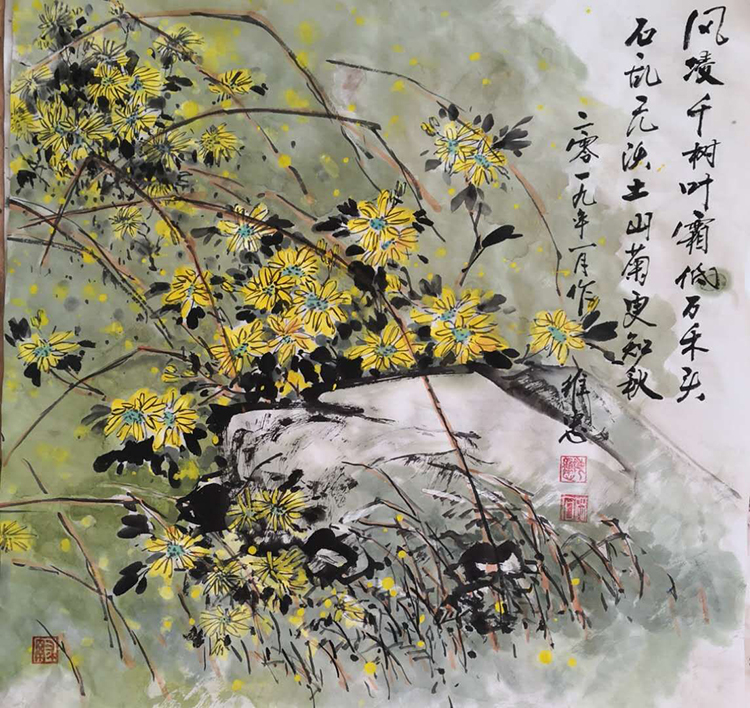 风凌千树叶霜倾万禾头
石乱无浃土山菊更知秋
二零一九年一月作